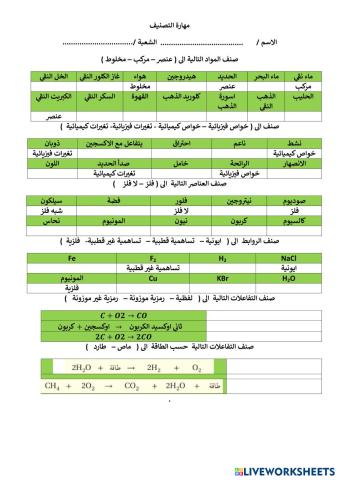 مهارة التصنيف
الاسم / ..................................... الشعبية /................................
صنف المواد التالية الى ( عنصر – مركب - مخلوط )
ماء نقي ماء البحر الحديد هيدروجين هواء غاز الكلور النقي الخل النقي
مركب عنصر مخلوط
الحليب الذهب النقي اسورة الذهب كلوريد الذهب القهوة السكر النقي الكبريت النقي
عنصر
صنف الى ( خواص فيزيائية – خواص كيميائية ، تغيرات فيزيائية، تغيرات كيميائية )
نشط ناعم احتراق يتفاعل مع الاكسجين ذوبان
خواص كيميائية تغيرات فيزيائية
الانصهار الرائحة خامل صدأ الحديد اللون
خواص فيزيائية تغيرات كيميائية
صنف العناصر التالية الى ( فلز – لا فلز )
صوديوم نيتروجين فلور فضة سيلكون
فلز لا فلز شبه فلز
كالسيوم كربون نيون المونيوم نحاس
صنف الروابط الى ( ايونية – تساهمية قطبية – تساهمية غير قطبية- فلزية )
NaCl H₂ F₂ Fe
ايونية تساهمية غير قطبية
H₂O KBr Cu المونيوم
فلزية
صنف التفاعلات التالية الى ( لفظية – رمزية موزونة – رمزية غير موزونة )
C + O2 → CO
ثاني اوكسيد الكربون → اوكسجين + كربون
2C + O2 → 2CO
صنف التفاعلات التالية حسب الطاقة الى ( ماص – طارد )
2H₂O + طاقة → 2H₂ + O₂
CH₄ + 2O₂ → CO₂ + 2H₂O + طاقة
LIVEWORKSHEETS